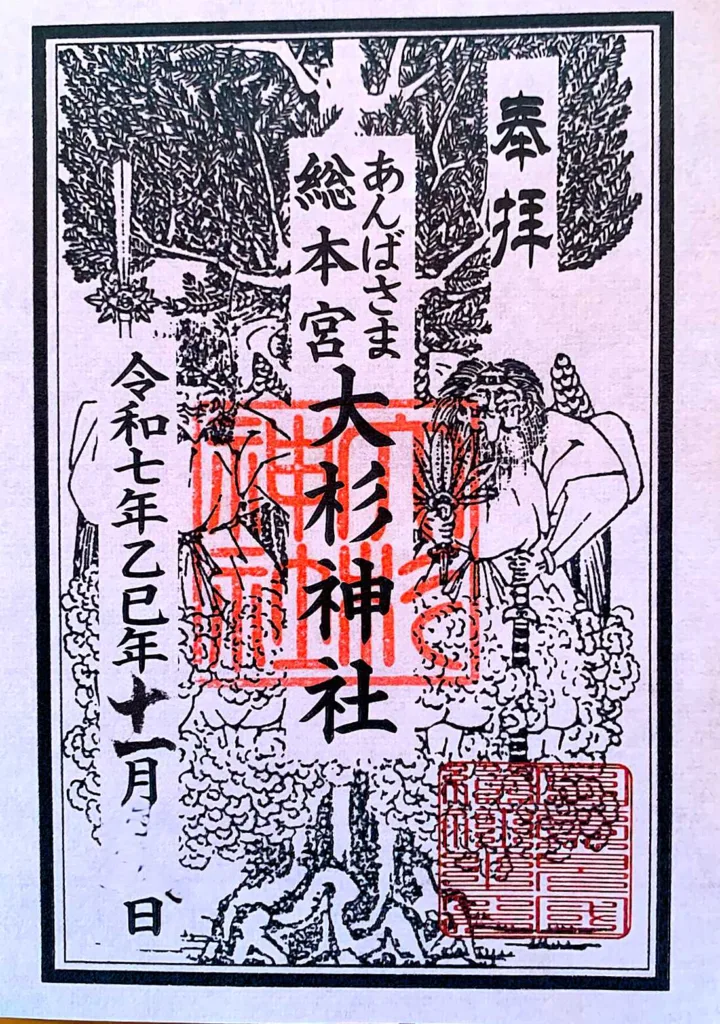 奉拝
あんばさま
総本宮
大杉神社
令和七年乙巳年十一月 日